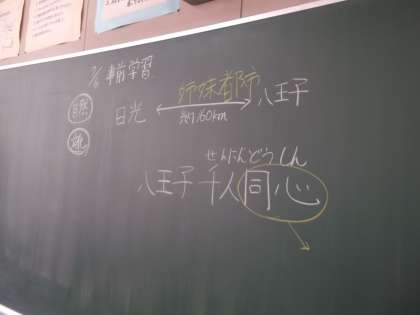 7/6 事前学習
姉妹都市
日光 ↔ 八王子
約160km
せんにんどうしん
八王子 千人同心